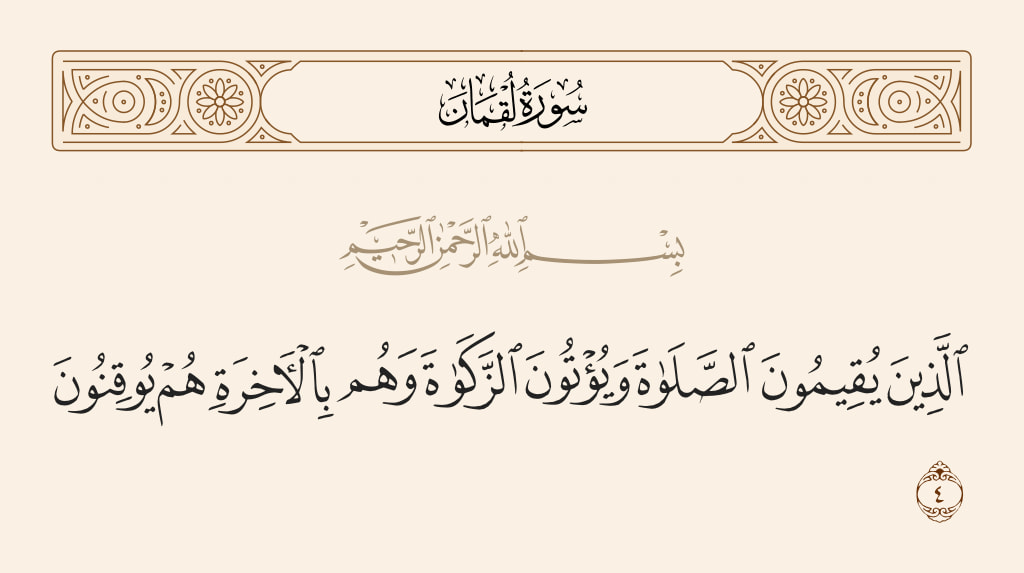 سُورَةُ لُقْمَانَ
بِسْمِ ٱللَّهِ ٱلرَّحْمَٰنِ ٱلرَّحِيمِ
ٱلَّذِينَ يُقِيمُونَ ٱلصَّلَوٰةَ وَيُؤْتُونَ ٱلزَّكَوٰةَ وَهُم بِٱلْـَٔاخِرَةِ هُمْ يُوقِنُونَ
٤